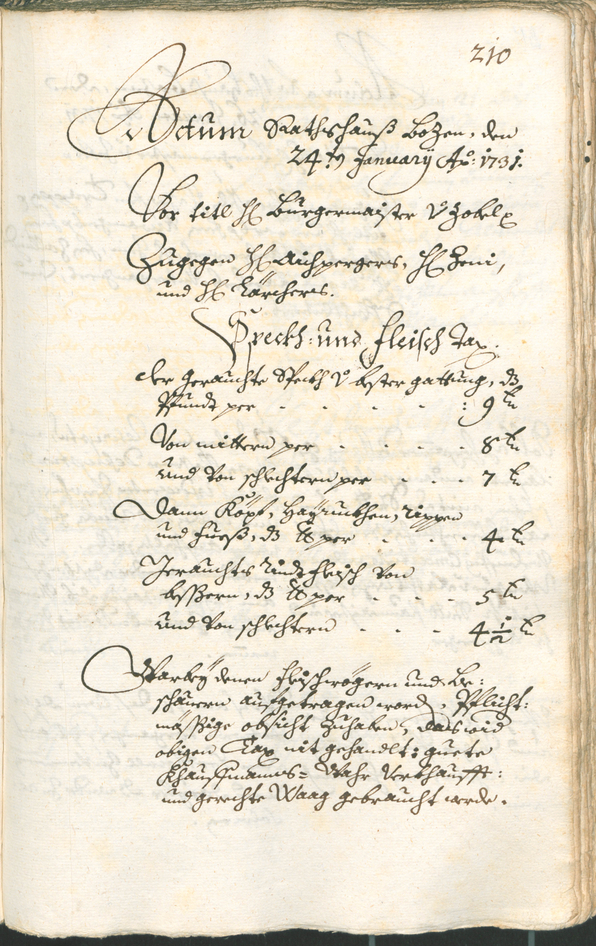 210
Actum Rathshauß Bozen, den
24.tn January Ao: 1731.
Vor titl H: Burgermaister v Zobel p
Zugegen H: Aichpergers, H: Zeni,
und H: Kärchers.
Speckh: und fleisch Tax.
der geraichte Speckh v bester gattung, dz
Pfundt per - - - - - : 9 kr
Von mittern per - - - - 8 kr
und von schlechtern per - - - 7 kr
Dann Köpf, Rippen
und Fueß, dz lb per - - - - 4 kr
Geraichts Rindtfleisch von
besseren, dz lb per - - - - 5 kr
und von schlechtern - - - - 4 1/2 kr
Warbey denen fleischwögern und Be:
schauern aufgetragen word, Pflicht:
mässige obsicht zuhaben, das wid
obigen Tax nit gehandlt: guete
Khauffmanns= Wahr verkhaufft:
und gerechte Waag gebraucht werde.